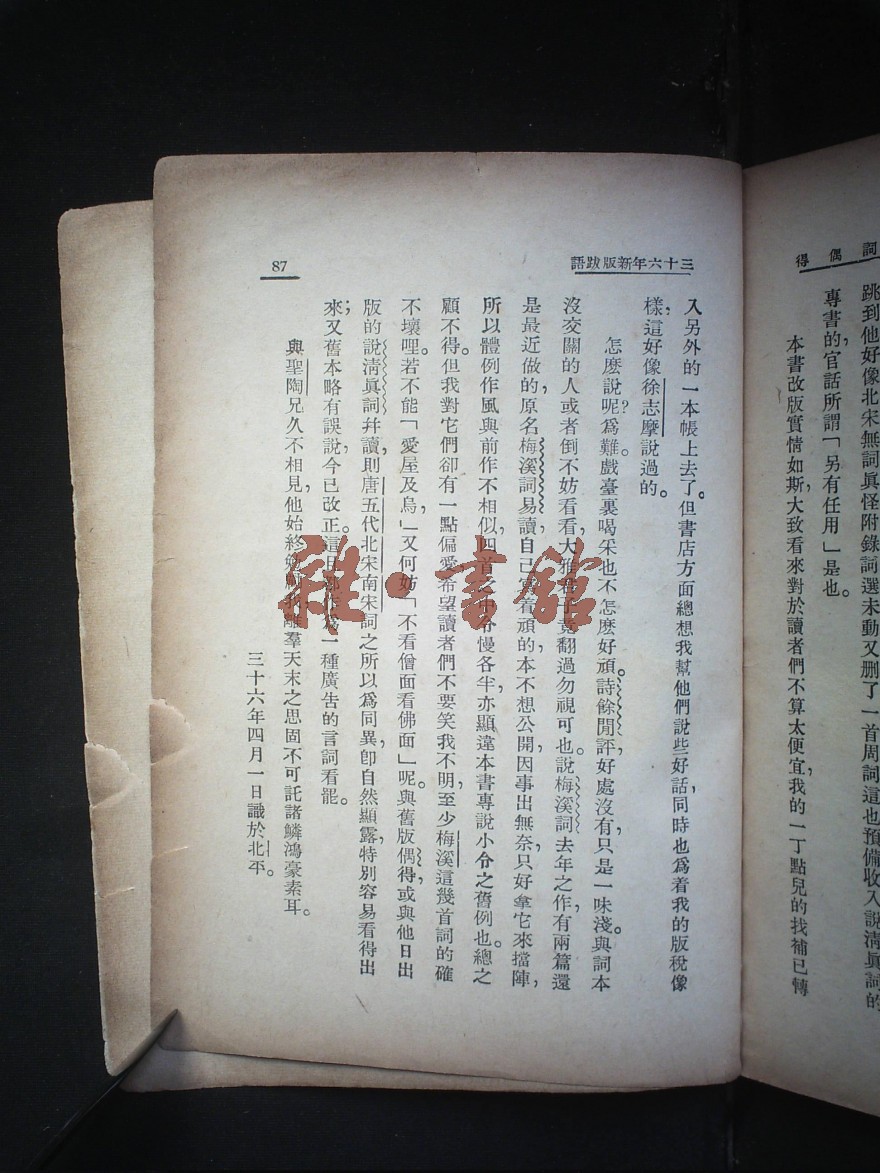 詞偶
得
跳到他好像北宋無詞眞怪附錄詞選未動又删了一首周詞這也預備收入說淸眞詞的
專書的,官話所謂「另有任用」是也。
本書改版實情如斯,大致看來對於讀者們不算太便宜,我的一丁點兒的找補已轉
三十六年新版跋語
87
入另外的一本帳上去了。但書店方面總想我幫他們說些好話,同時也爲着我的版稅像
樣,這好像徐志摩說過的。
怎麼說呢?爲難。戲臺裏喝采也不怎麼好頑。詩餘閒評,好處沒有,只是一味淺。與詞本
沒交關的人或者倒不妨看看,大雅君子竟翻過勿視可也。說梅溪詞去年之作,有兩篇還
是最近做的,原名梅溪詞易讀,自己寫着頑的,本不想公開,因事出無奈,只好拿它來擋陣,
所以體例作風與前作不相似,四首之中令慢各半,亦顯違本書專說小令之舊例也。總之
顧不得。但我對它們卻有一點偏愛,希望讀者們不要笑我不明,至少梅溪這幾首詞的確
不壞哩。若不能「愛屋及烏,」又何妨「不看僧面看佛面」呢。與舊版偶得,或與他日出
版的說淸眞詞幷讀,則唐五代北宋南宋詞之所以爲同異,卽自然顯露,特別容易看得出
來;又舊本略有誤說,今已改正。這且爲一種廣告的言詞看罷。
與聖陶兄久不相見,他始終勉我離羣天末之思固不可託諸鱗鴻豪素耳。
三十六年四月一日識於北平。
雜·書館